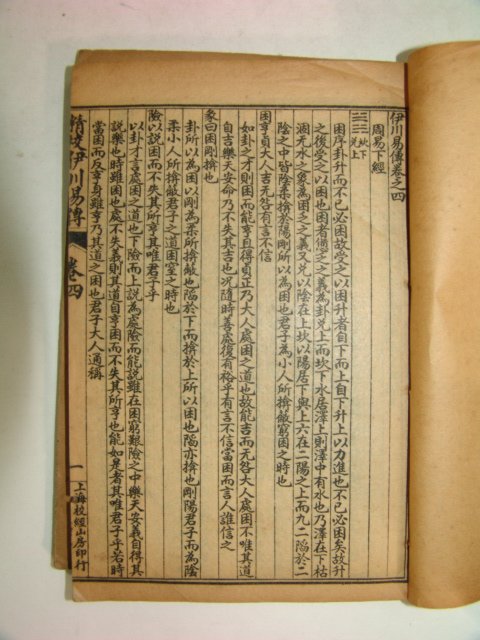 伊川易傳卷之四
周易下經
䷮坎下兌上
困序卦升而不已必困故受之以困升者自下而上自下升上以力進也不已必困矣故升
之後受之以困也困者憊乏之義為卦兌上而坎下水居澤上則澤中有水也乃澤在下枯
涸无水之象為困乏之義又兌以陰在上坎以陽居下與上六在二陽之上而九二陷於二
陰之中皆陰柔揜於陽剛所以為困也君子為小人所揜蔽窮困之時也
困亨貞大人吉无咎有言不信
如卦之才則困而能亨且得貞正乃大人處困之道也故能吉而无咎大人處困不唯其道
自吉樂天安命乃不失其吉也况隨時善處復有裕乎有言不信當困而言人誰信之
彖曰困剛揜也
卦所以為困以剛為柔所揜蔽也陷於下而揜於上所以困也陷亦揜也剛陽君子而為陰
柔小人所揜蔽君子之道困窒之時也
險以說困而不失其所亨其唯君子乎
以卦才言處困之道也下險而上說為處險而能說雖在困窮艱險之中樂天安義自得其
說樂也時雖困也處不失義則其道自亨困而不失其所亨也能如是者其唯君子乎若時
當困而反亨身雖亨乃其道之困也君子大人通稱
精校伊川易傳 卷四 一 上海校經山房印行